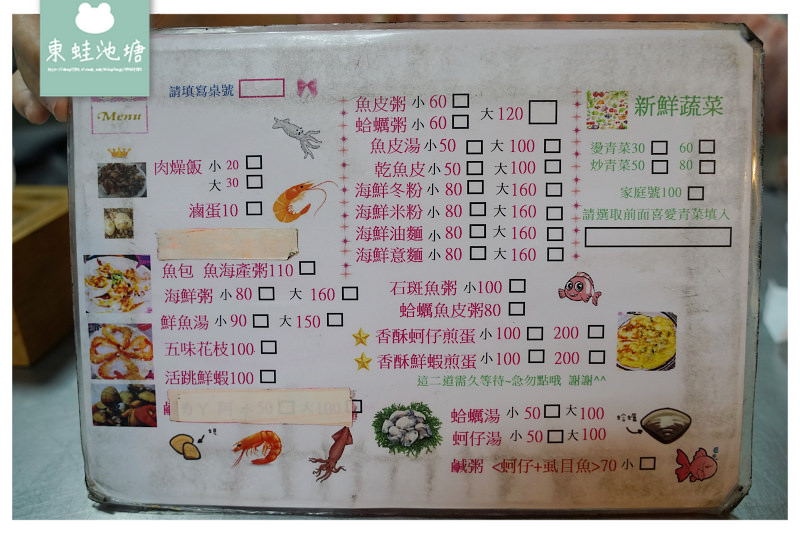 東蛙池塘
請填寫桌號
Menu
肉燥飯 小 20
大 30
滷蛋10
魚包 魚海產粥110
海鮮粥 小 80 大 160
鮮魚湯 小 90 大 150
五味花枝100
活跳鮮蝦100
魚皮粥 小 60
蛤蠣粥 小 60
大 120
魚皮湯 小 50 大 100
乾魚皮 小 50 大 100
海鮮冬粉 小 80 大 160
海鮮米粉 小 80 大 160
海鮮油麵 小 80 大 160
海鮮意麵 小 80 大 160
石斑魚粥 小100
蛤蠣魚皮粥80
香酥蚵仔煎蛋 小 100 200
香酥鮮蝦煎蛋 小 100 200
這二道需久等待~急勿點哦 謝謝^^
蛤蠣湯 小 50 大 100
蚵仔湯 小 50 大 100
鹹粥 <蚵仔+虱目魚>70 小
新鮮蔬菜
燙青菜30 60
炒青菜50 80
家庭號100
請選取前面喜愛青菜填入